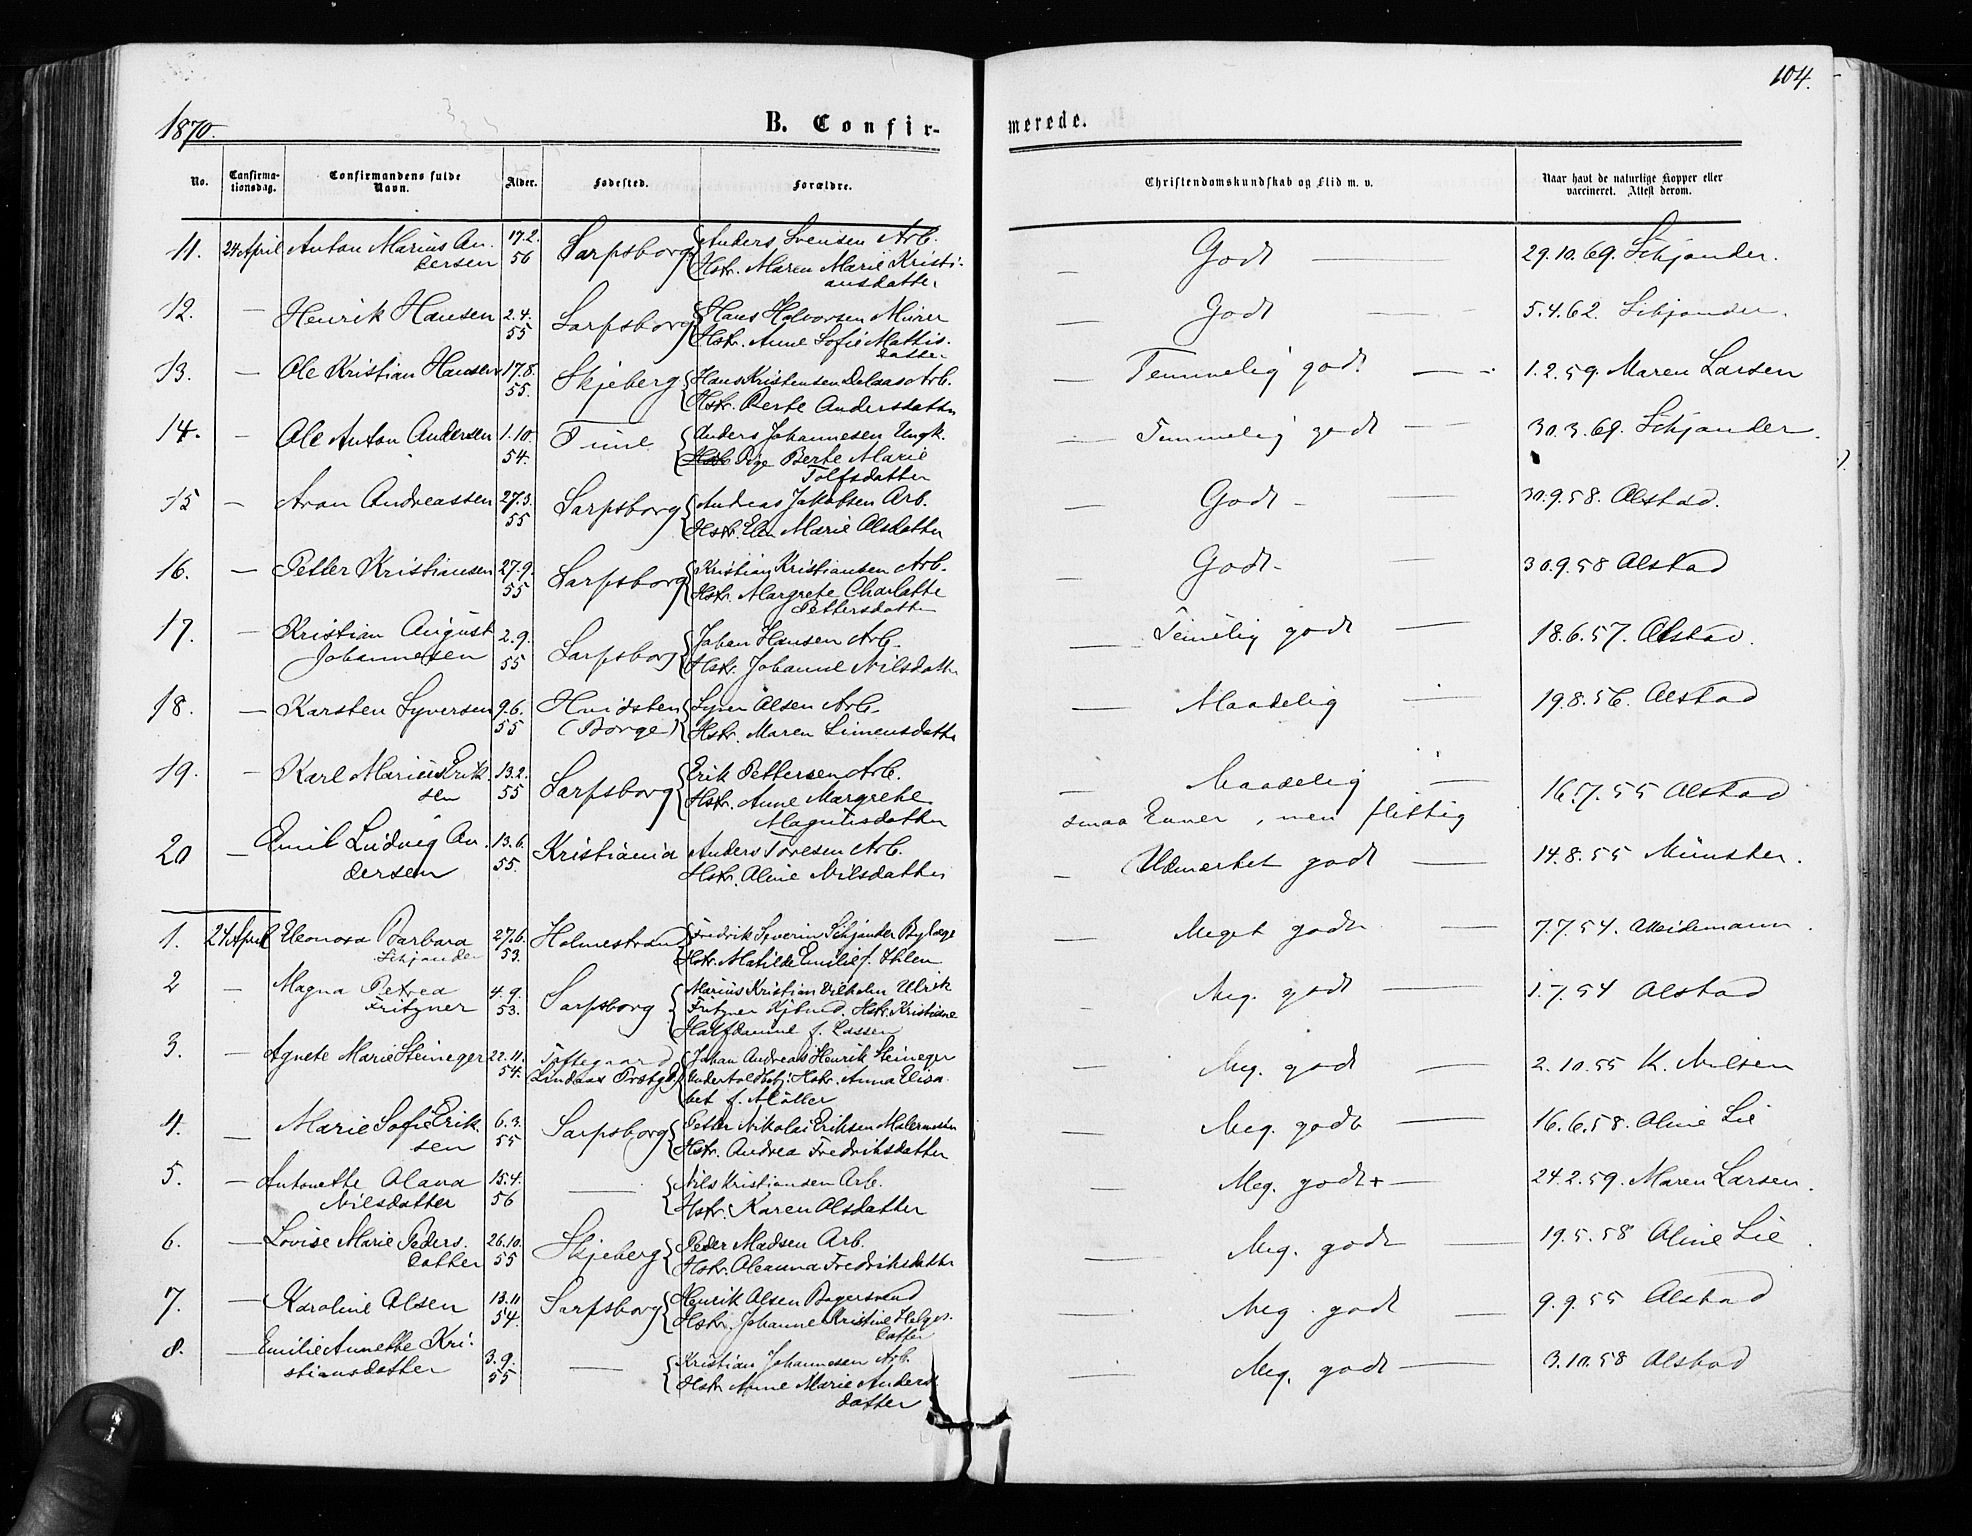 1870.
B. Confirmerede.
104.
No. Confirmationsdag. Confirmandens fulde Navn. Alder. Fødested. Forældre. Christendomskundskab og Flid m. v. Naar havt de naturlige Kopper eller vaccineret. Attest derom.
11. 24 April Anton Marius An- 17.2. Sarpsborg Anders Svensen Arb. Godt 29.10.69. Schjander.
dersen 56 Hstr. Maren Marie Kristi-
ansdatter
12. — Henrik Hansen 2.4. Sarpsborg Hans Halvorsen Murer Godt 5.4.62. Schjander.
55 Hstr. Anne Sofie Mathis-
datter
13. — Ole Kristian Hansen 17.8. Skjeberg Hans Kristensen Arb. Temmelig godt 1.2.59. Maren Larsen
55. Hstr. Berte Andersdatter
14. — Ole Anton Andersen 1.10. Tune Anders Johannesen Ungk. Temmelig godt 30.3.69. Schjander.
54. Pige Berte Marie
Tolfsdatter
15 — Aron Andreassen 27.3. Sarpsborg Andreas Jakobsen Arb. Godt 30.9.58. Alstad.
55 Hstr. Elen Marie Olsdatter
16. — Petter Kristiansen 27.9. Sarpsborg Kristian Kristiansen Arb. Godt 30.9.58 Alstad
55 Hstr. Margrete Charlotte
Pettersdatter
17. — Kristian August 2.9. Sarpsborg Johan Hansen Arb. Temelig godt 18.6.57. Alstad.
Johannesen 55 Hstr. Johanne Nilsdatter
18. — Karsten Syversen 9.6. Hvidsten Syver Olsen Arb. Maadelig 19.8.56. Alstad
55 (Borge) Hstr. Maren Simensdatter
19. — Karl Marius Erik- 13.2. Sarpsborg Erik Pettersen Arb. Maadelig 16.7.55 Alstad
sen 55 Hstr. Anne Margrethe smaa Evner, men flittig
Magnusdatter
20 — Emil Ludvig An- 13.6. Kristiania Anders Toresen Arb. Udmærket godt 14.8.55 Münster.
dersen 55. Hstr. Oline Nilsdatter
1. 24 April Eleonora Barbara 27.6. Holmestrand Fredrik Severin Schjander Byfoge Meget godt 7.7.54. Weidemann.
Schjander 53. Hstr. Matilde Emilie f. Ihlen
2 — Magna Petrea 4.9. Sarpsborg Marius Kristian Vilhelm Ulrik Meg. godt 1.7.54 Alstad
Fritzner 53. Fritzner Kjbmd. Hstr. Kristiane
Halfdanine f. Lassen
3. — Agnete Marie Steineger 22.11. Toftegaard Johan Andreas Henrik Steineger Meg. godt 2.10.55 K. Nilsen
54. Lindaas Prstgd. Undertoldbetj. Hstr. Anna Elisa-
bet f. Møller
4. — Marie Sofie Erik- 6.3. Sarpsborg Petter Nikolai Eriksen Malermester Meg. godt 16.6.58. Oline Lie
sen 55 Hstr. Andrea Fredriksdatter
5. — Antonette Olava 15.4. — Nils Kristiansen Arb. Meg. godt + 24.2.59. Maren Larsen.
Nilsdatter 56 Hstr. Karen Olsdatter
6. — Lovise Marie Peders- 26.10. Skjeberg Peder Madsen Arb. Meg. godt 19.5.58 Oline Lie.
datter 55 Hstr. Oleanna Fredriksdatter
7. — Karoline Olsen 13.11 Sarpsborg Henrik Olsen Bagersvend Meg. godt 9.9.55 Alstad
54. Hstr. Johanne Kristine Helges-
datter
8. — Emilie Annette Kri- 3.9. — Kristian Johannesen Arb. Meg. godt 3.10.58 Alstad
stiansdatter 55 Hstr. Anne Marie Anders-
datter